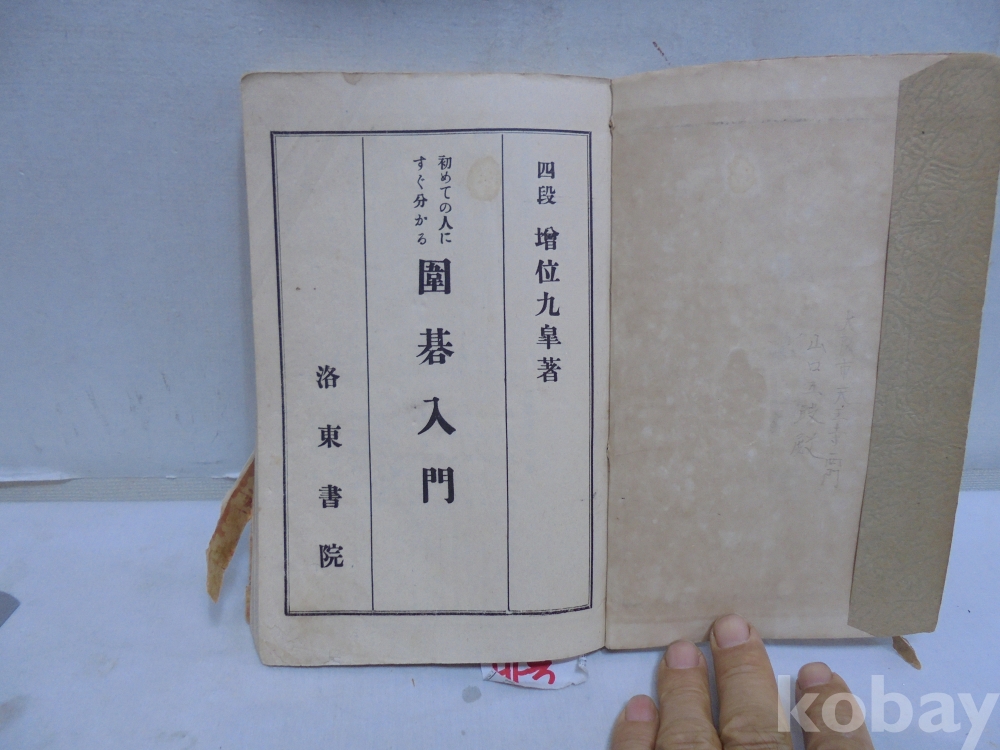 四段 增位九皐著
初めての人に
すぐ分かる
圍碁入門
洛東書院
kobay